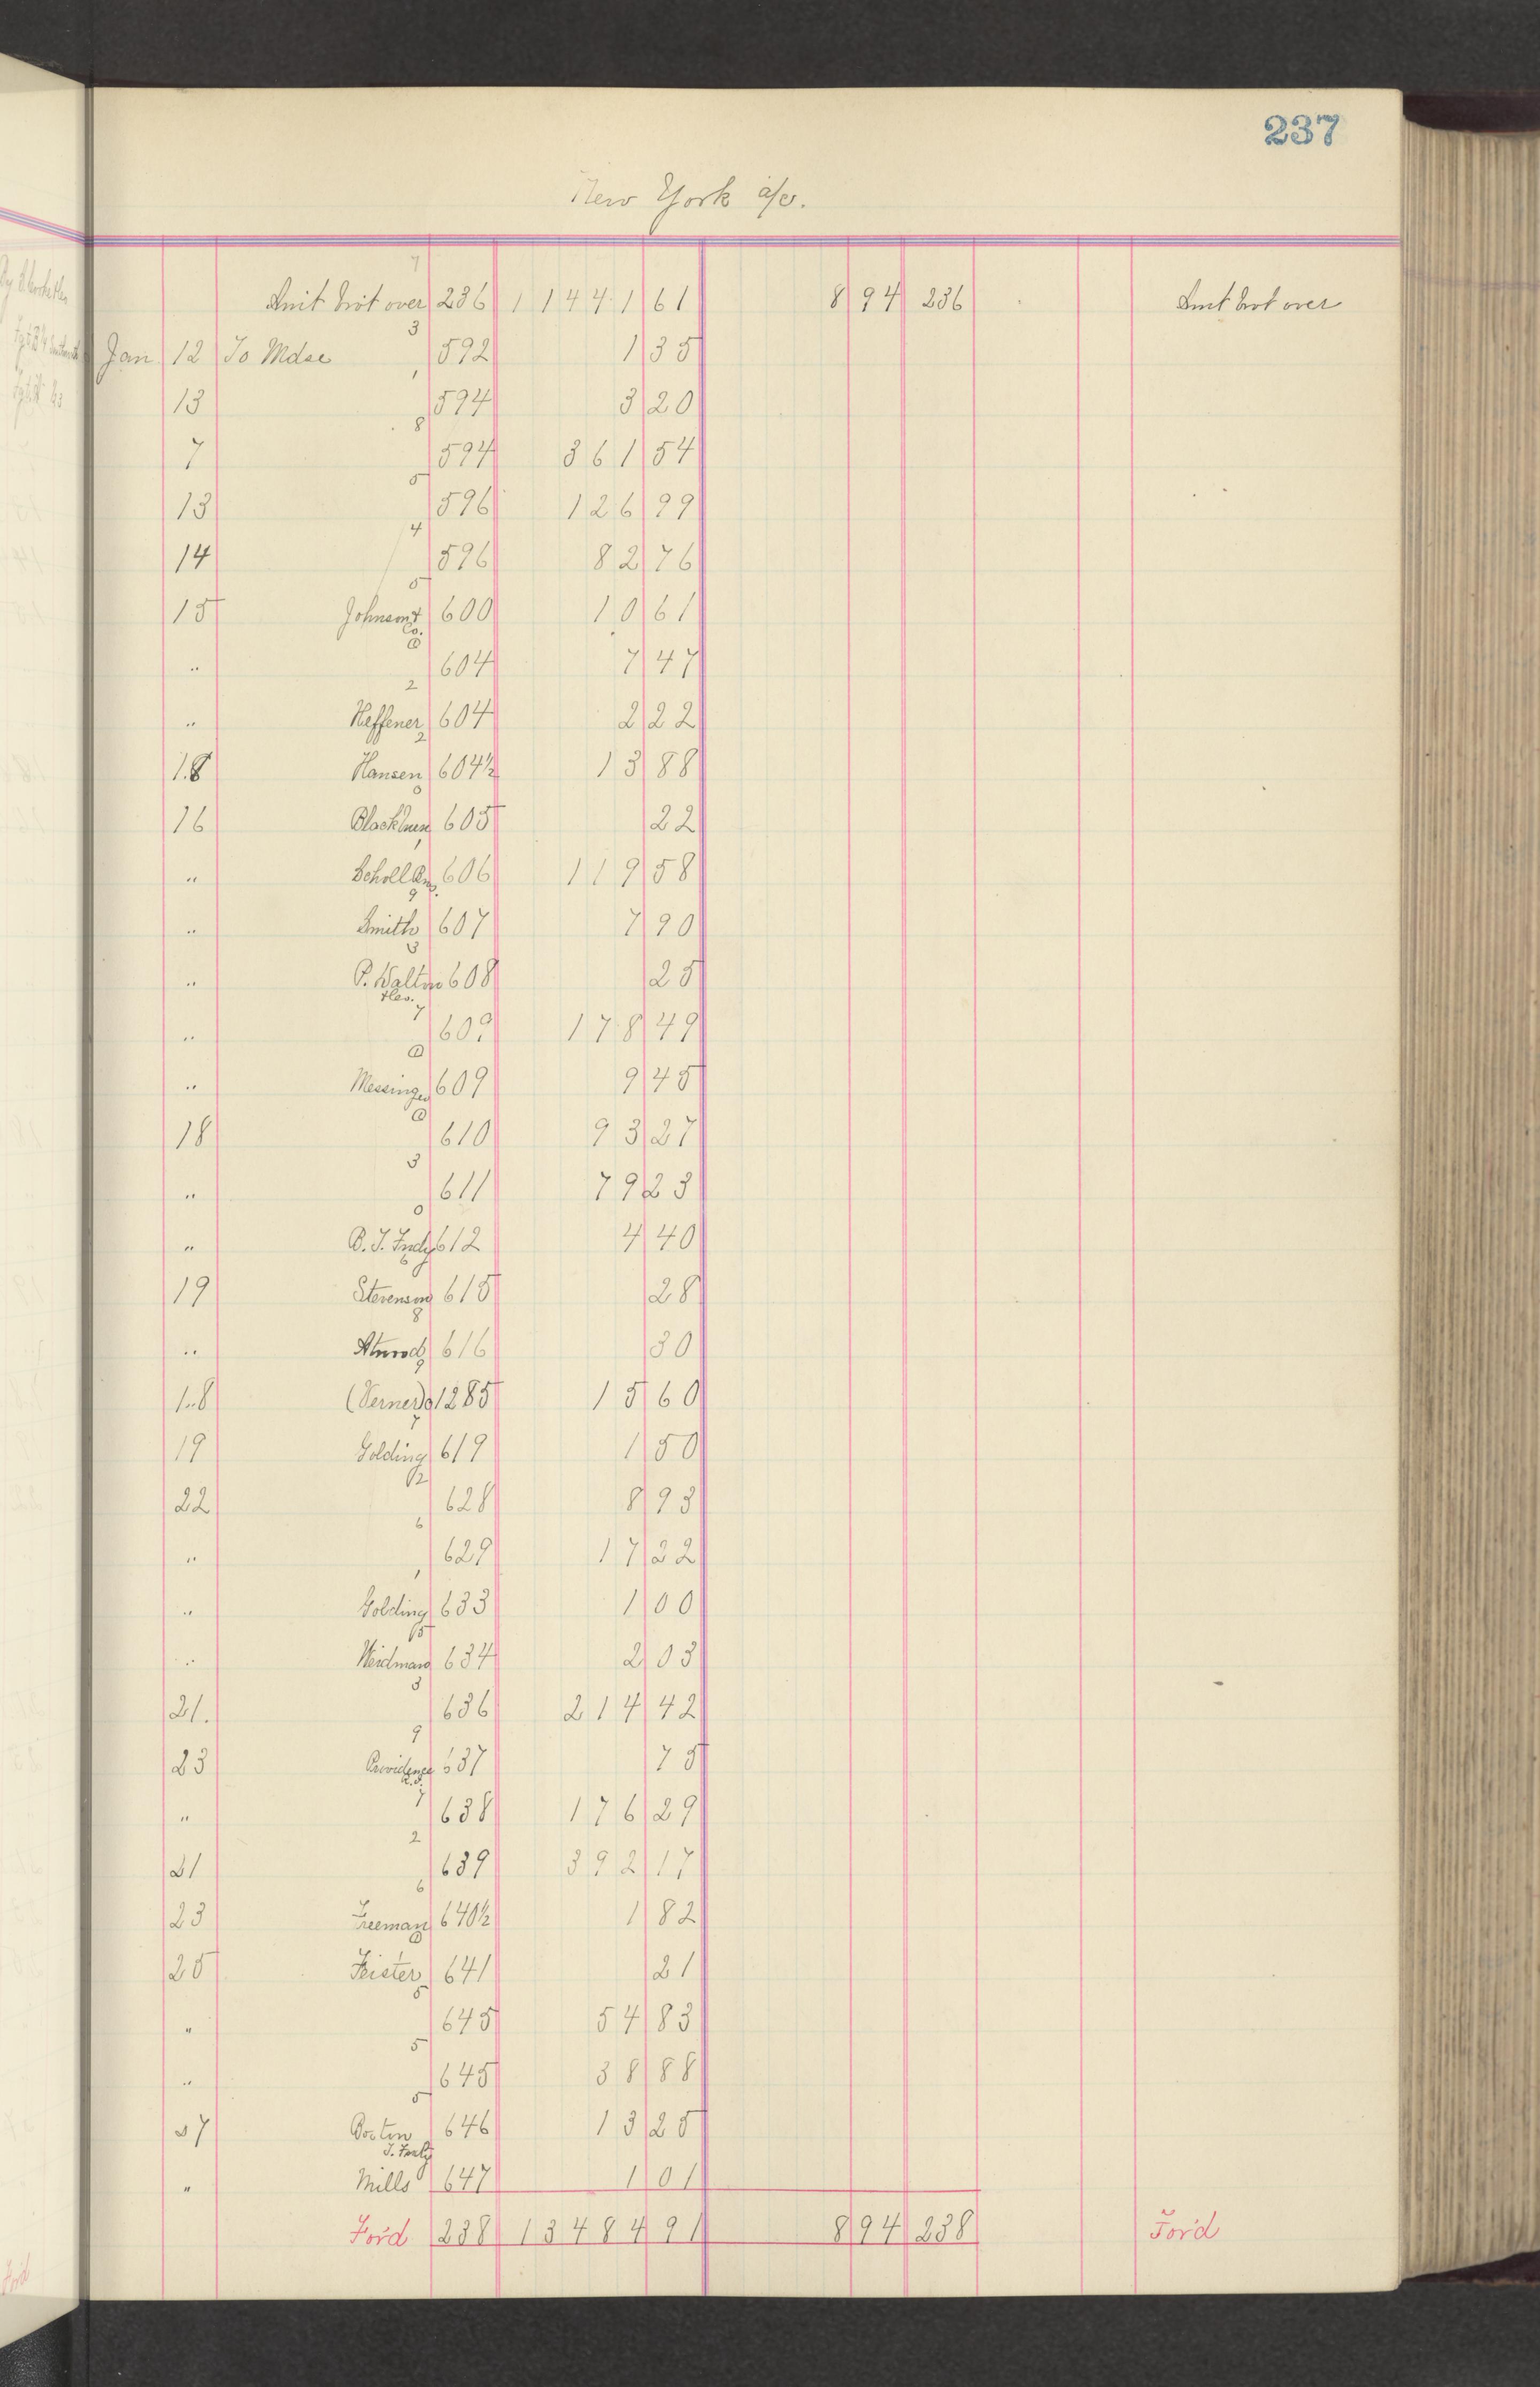 237
New York a/c.
Amt brot over 236 11441 61 8 94 236 Amt brot over
Jan 12 To Mdse 592 1 35
13 594 3 20
7 594 361 54
13 596 126 99
14 596 82 76
15 Johnson & Co. 600 10 61
" 604 7 47
" Heffener 604 2 22
18 Hansen 604½ 13 88
16 Blackburn 605 22
" Scholl Bros. 606 119 58
" Smith 607 7 90
" P. Walton 608 25
" 609 178 49
" Messinger 609 9 45
18 610 93 27
" 611 79 23
" B. J. 612 4 40
19 Stevenson 615 28
" Atwood 616 30
18 (Verner) 1285 15 60
19 Golding 619 1 50
22 628 8 93
" 629 17 22
" Golding 633 1 00
" Weidman 634 2 03
21. 636 214 42
23 Providence R.I. 637 75
" 638 176 29
21 639 392 17
23 Freeman 640½ 1 82
25 Feister 641 21
" 645 54 83
" 645 38 88
27 Boston 646 13 25
" Mills 647 1 01
For'd 238 13484 91 8 94 238 For'd